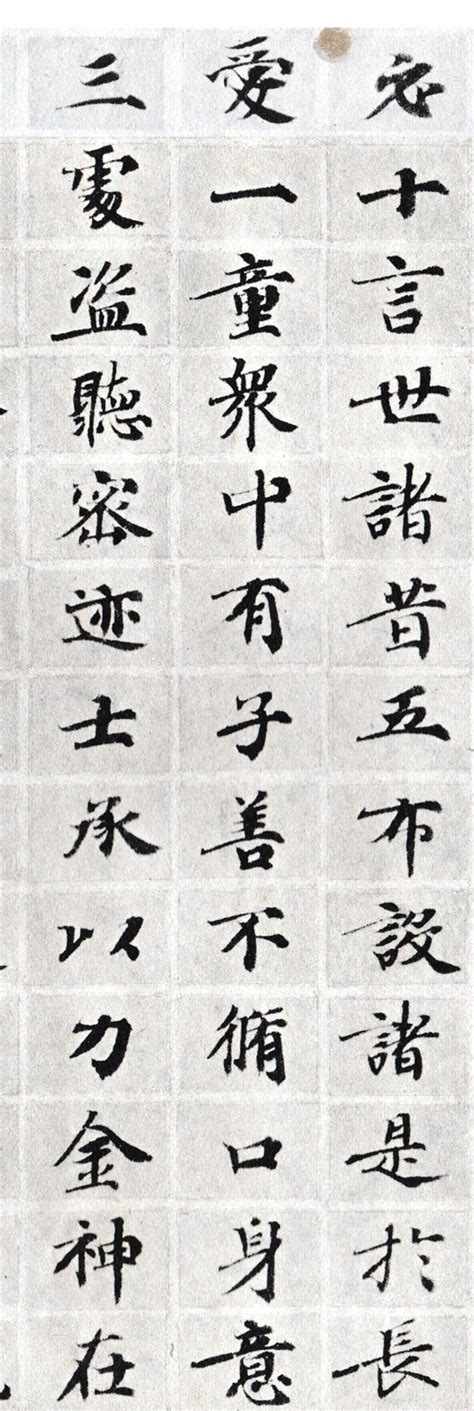 十言世諸昔五布設諸是於長
愛一童衆中有子善不脩口身意
三處盗聽密迹士承以力金神在